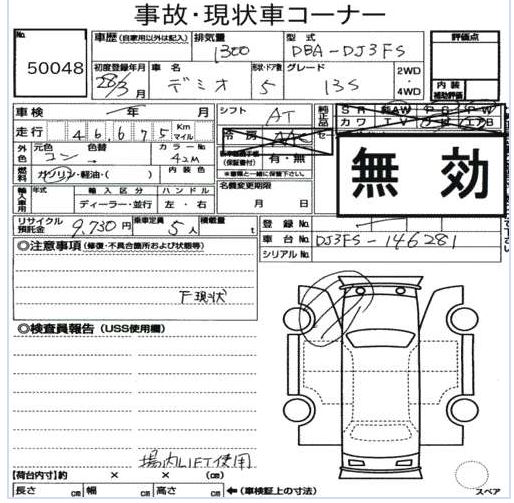 事故・現状車コーナー
No.
50048
車歴 (自家用以外は記入) 排気量 型式
1300 DBA-DJ3FS
初度登録年月 車名 形状・ドア数 グレード
28/3 月 デミオ 5 13S
2WD
・
4WD
評価点
内装
補助評価
車検 年 月
シフト AT
走行 46,675 Km マイル
冷房 A/C
純正品
SR 純AW PS PW
カワ TV
無効
外色 元色 色替 カラーNo.
コン 41M
燃料 ガソリン・軽油・( ) 内装色
(保証書付) 有・無
※車検と一緒に保管下さい。
輸入車用 年式 輸入区分 ハンドル
ディーラー・並行 左・右
名義変更期限
月 日
リサイクル預託金 9,730 円 乗車定員 5 人 積載量 t
登録No.
車台No. DJ3FS-146281
シリアルNo.
◎注意事項 (修復・不具合箇所および状態等)
下現状
◎検査員報告 (USS使用欄)
場内LIFT使用
【荷台内寸】約 × × (cm)
長さ cm 幅 cm 高さ cm ←(車検証上の寸法)
スペア